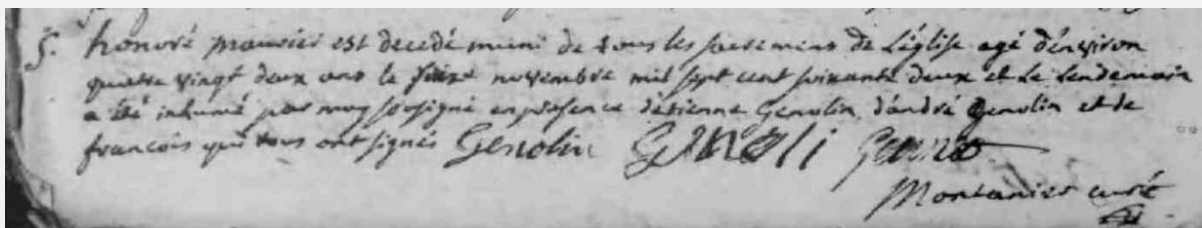 5. honoré maurier est decedé muni de tous les sacremens de L'église agé d'environ
quatre vingt deux ans le seize novembre mil sept cent soixante deux et le lendemain
a été inhumé par moy soussigné en presence d'etienne Genolin d'andré Genolin et de
francois qui tous ont signés Genolin Genoli
Montanier curé